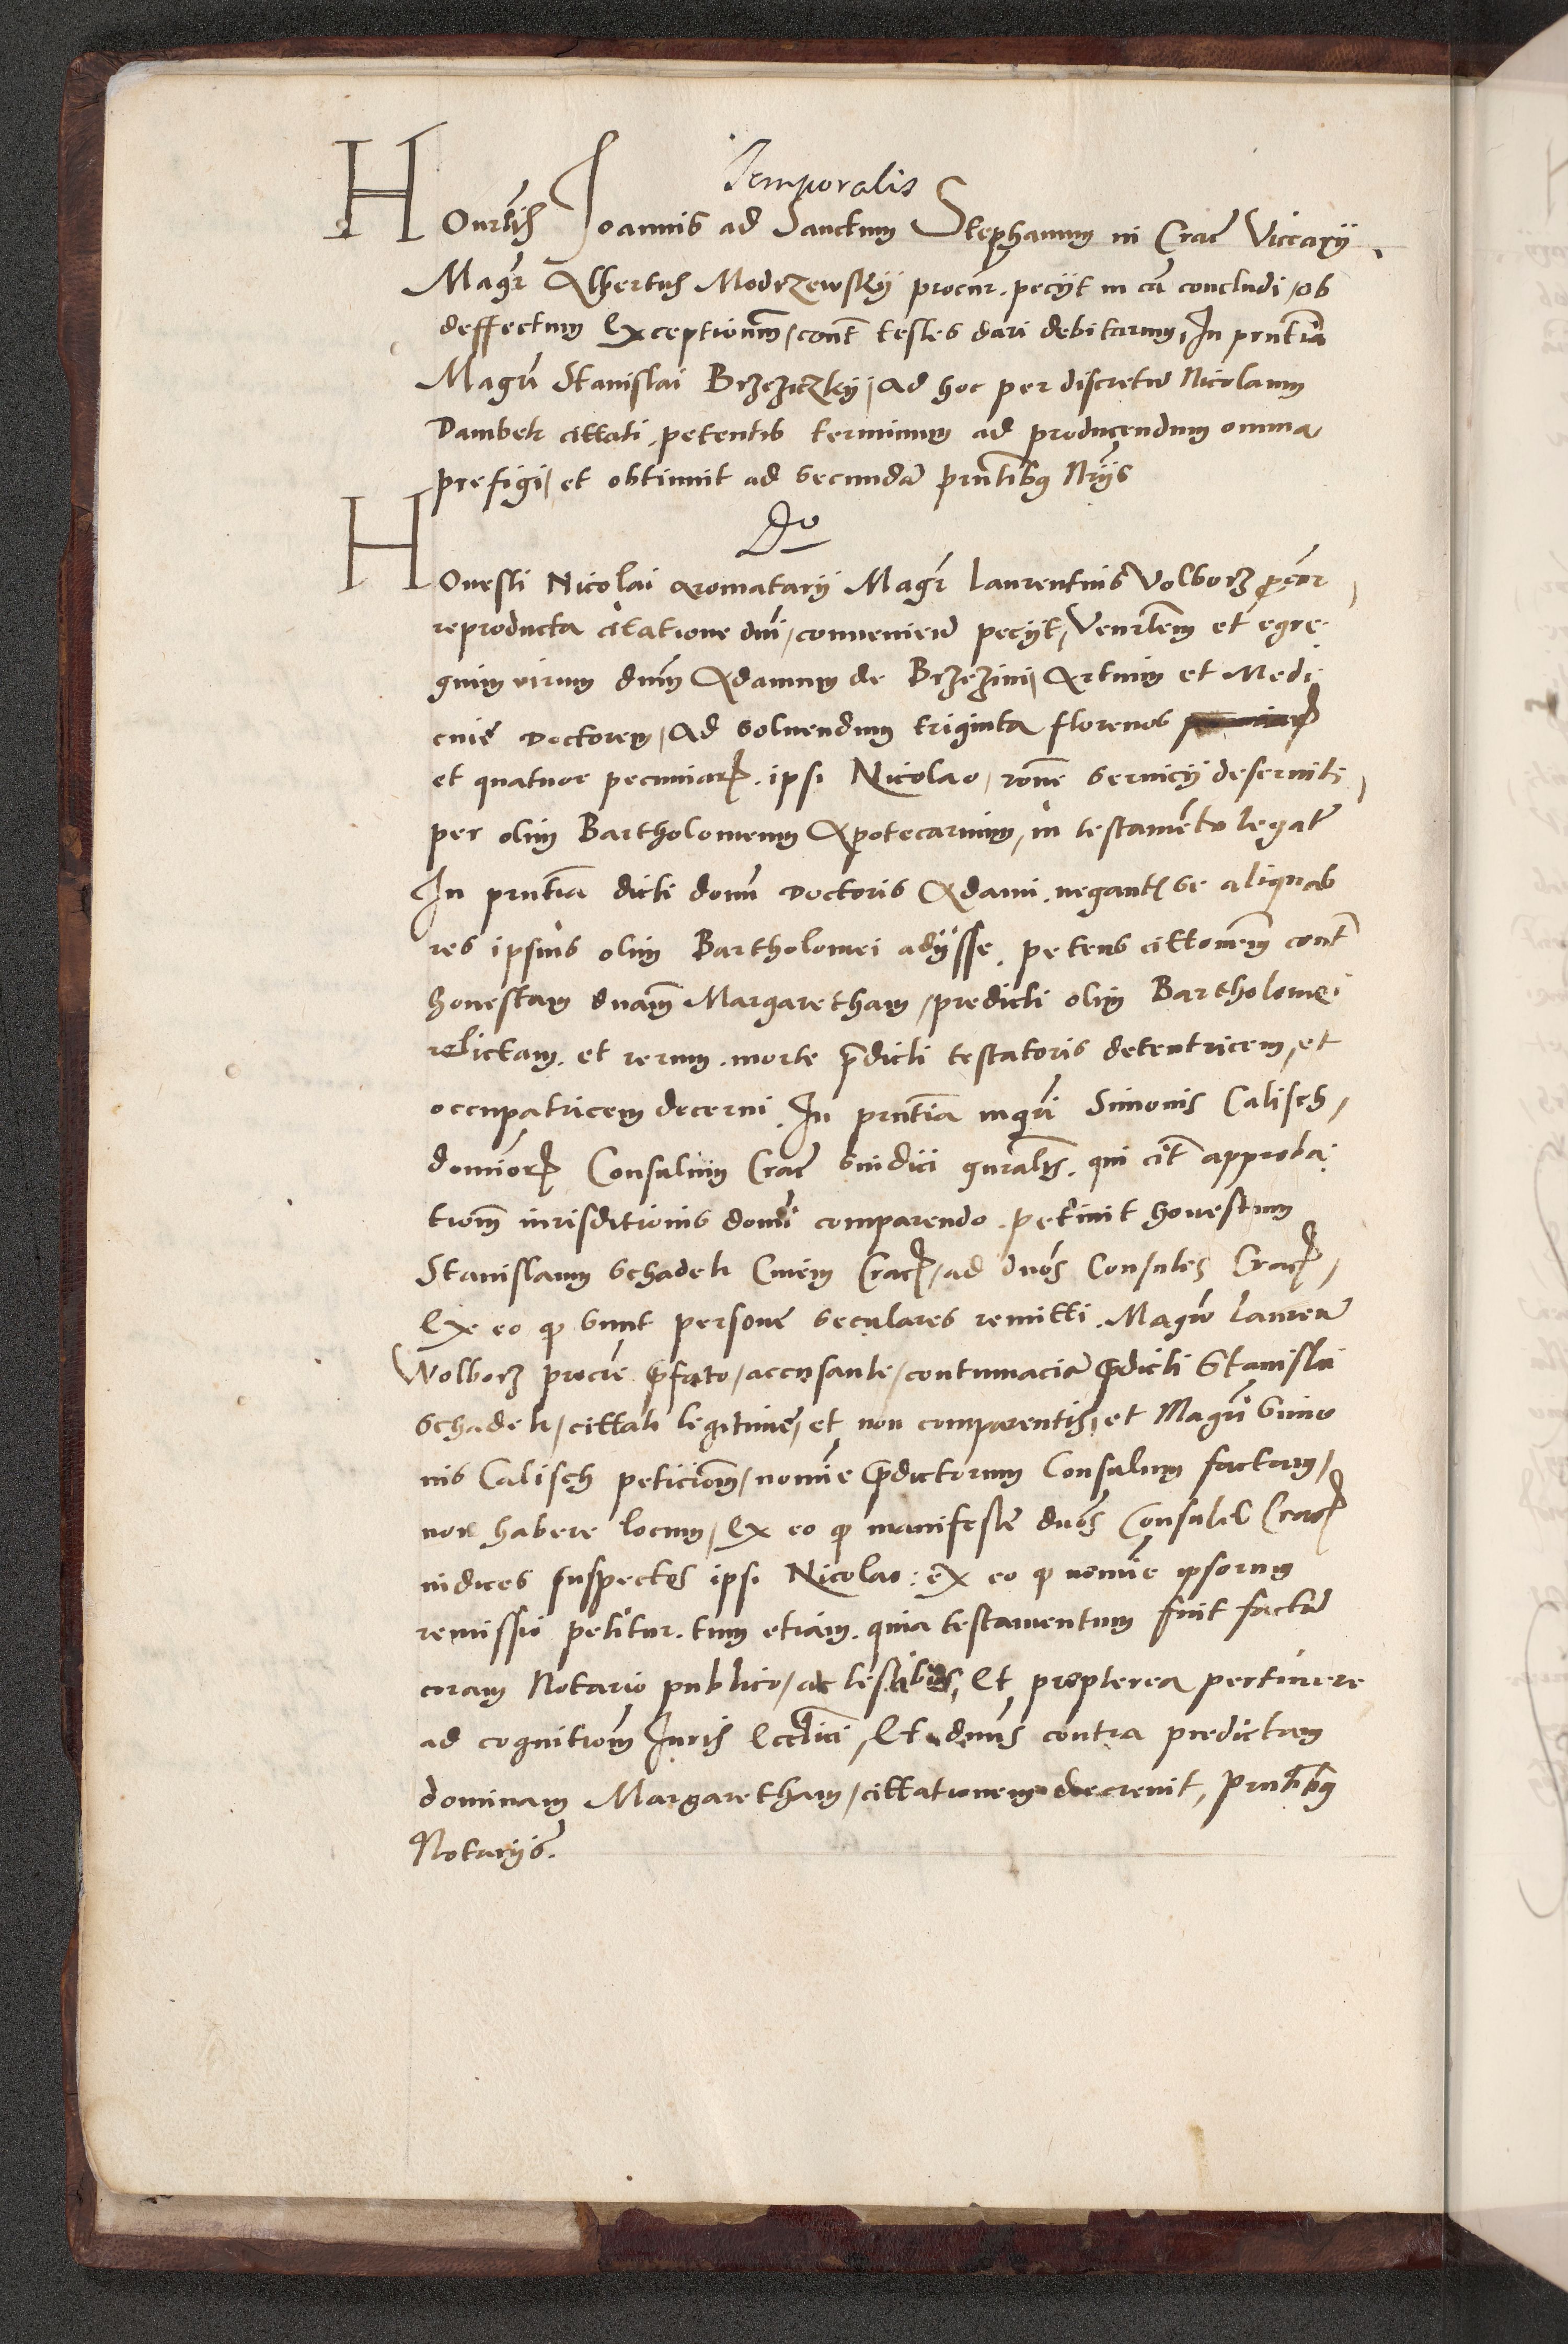 Temporalis
HOnrlis Joannis ad Sanctum Stephanum in Crac Viccarij
Magr Albertus Modrzewskij procur. pecijt in ca concludi, ob
deffectum Exceptionum, cont testes dari debitarum, In pntia
Magri Stanislai Brzeziczkij, ad hoc per discretu Nicolaum
Dambek cittati, petentis terminum ad producendum omnia
prefigi, et obtinuit ad secunda pntibus Nrijs
Do
HOnesti Nicolai aromatarij Magr Laurentius Volborz pcor
reproducta citatione dni, conveniend pecijt, Venrlem et egre
gium virum dnm Adamum de Brzezini, Artium et Medi
cine Doctorem, Ad solvendum triginta florenos
et quatuor pecuniar. ipsi Nicolao, rone servicij deserviti
per olim Bartholomeum Apotecarium, in testamento legat
In pntia dicti domi Doctoris Adami, negantis se aliquas
res ipsius olim Bartholomei adijsse, petens cittonem cont
honestam dnam Margaretham, predicti olim Bartholomei
relictam, et rerum, morte pdicti testatoris detentricem, et
occupatricem decerni. In pntia mgri Simonis Calisch,
dominor Consulum Crac sindici gnralis, qui cit approba
tiom iurisditionis domi comparendo, petiuit honestum
Stanislaum Schadek Civem Crac, ad dnos Consules Crac,
Ex eo q sunt persone seculares remitti. Magro Lauren
Wolborz procre pfato, accusante, contumacia pdicti Stanislai
Schadek, cittati legitime, et non comparentis, et Magri Simo
nis Calisch peticiom, nomine pdictorum Consulum factam,
non habere locum, Ex eo q manifeste dnos Consules Crac
iudices suspectos ipsi Nicolao: ex eo q nomine ipsorum
remissio petitur. tum etiam, quia testamentum fuit factu
coram Notario publico, ac testibus, Et propterea pertinere
ad cognitiom Juris Ecclici, Et dnus contra predictam
dominam Margaretham, cittationem decrevit, pntibus
Notarijs.